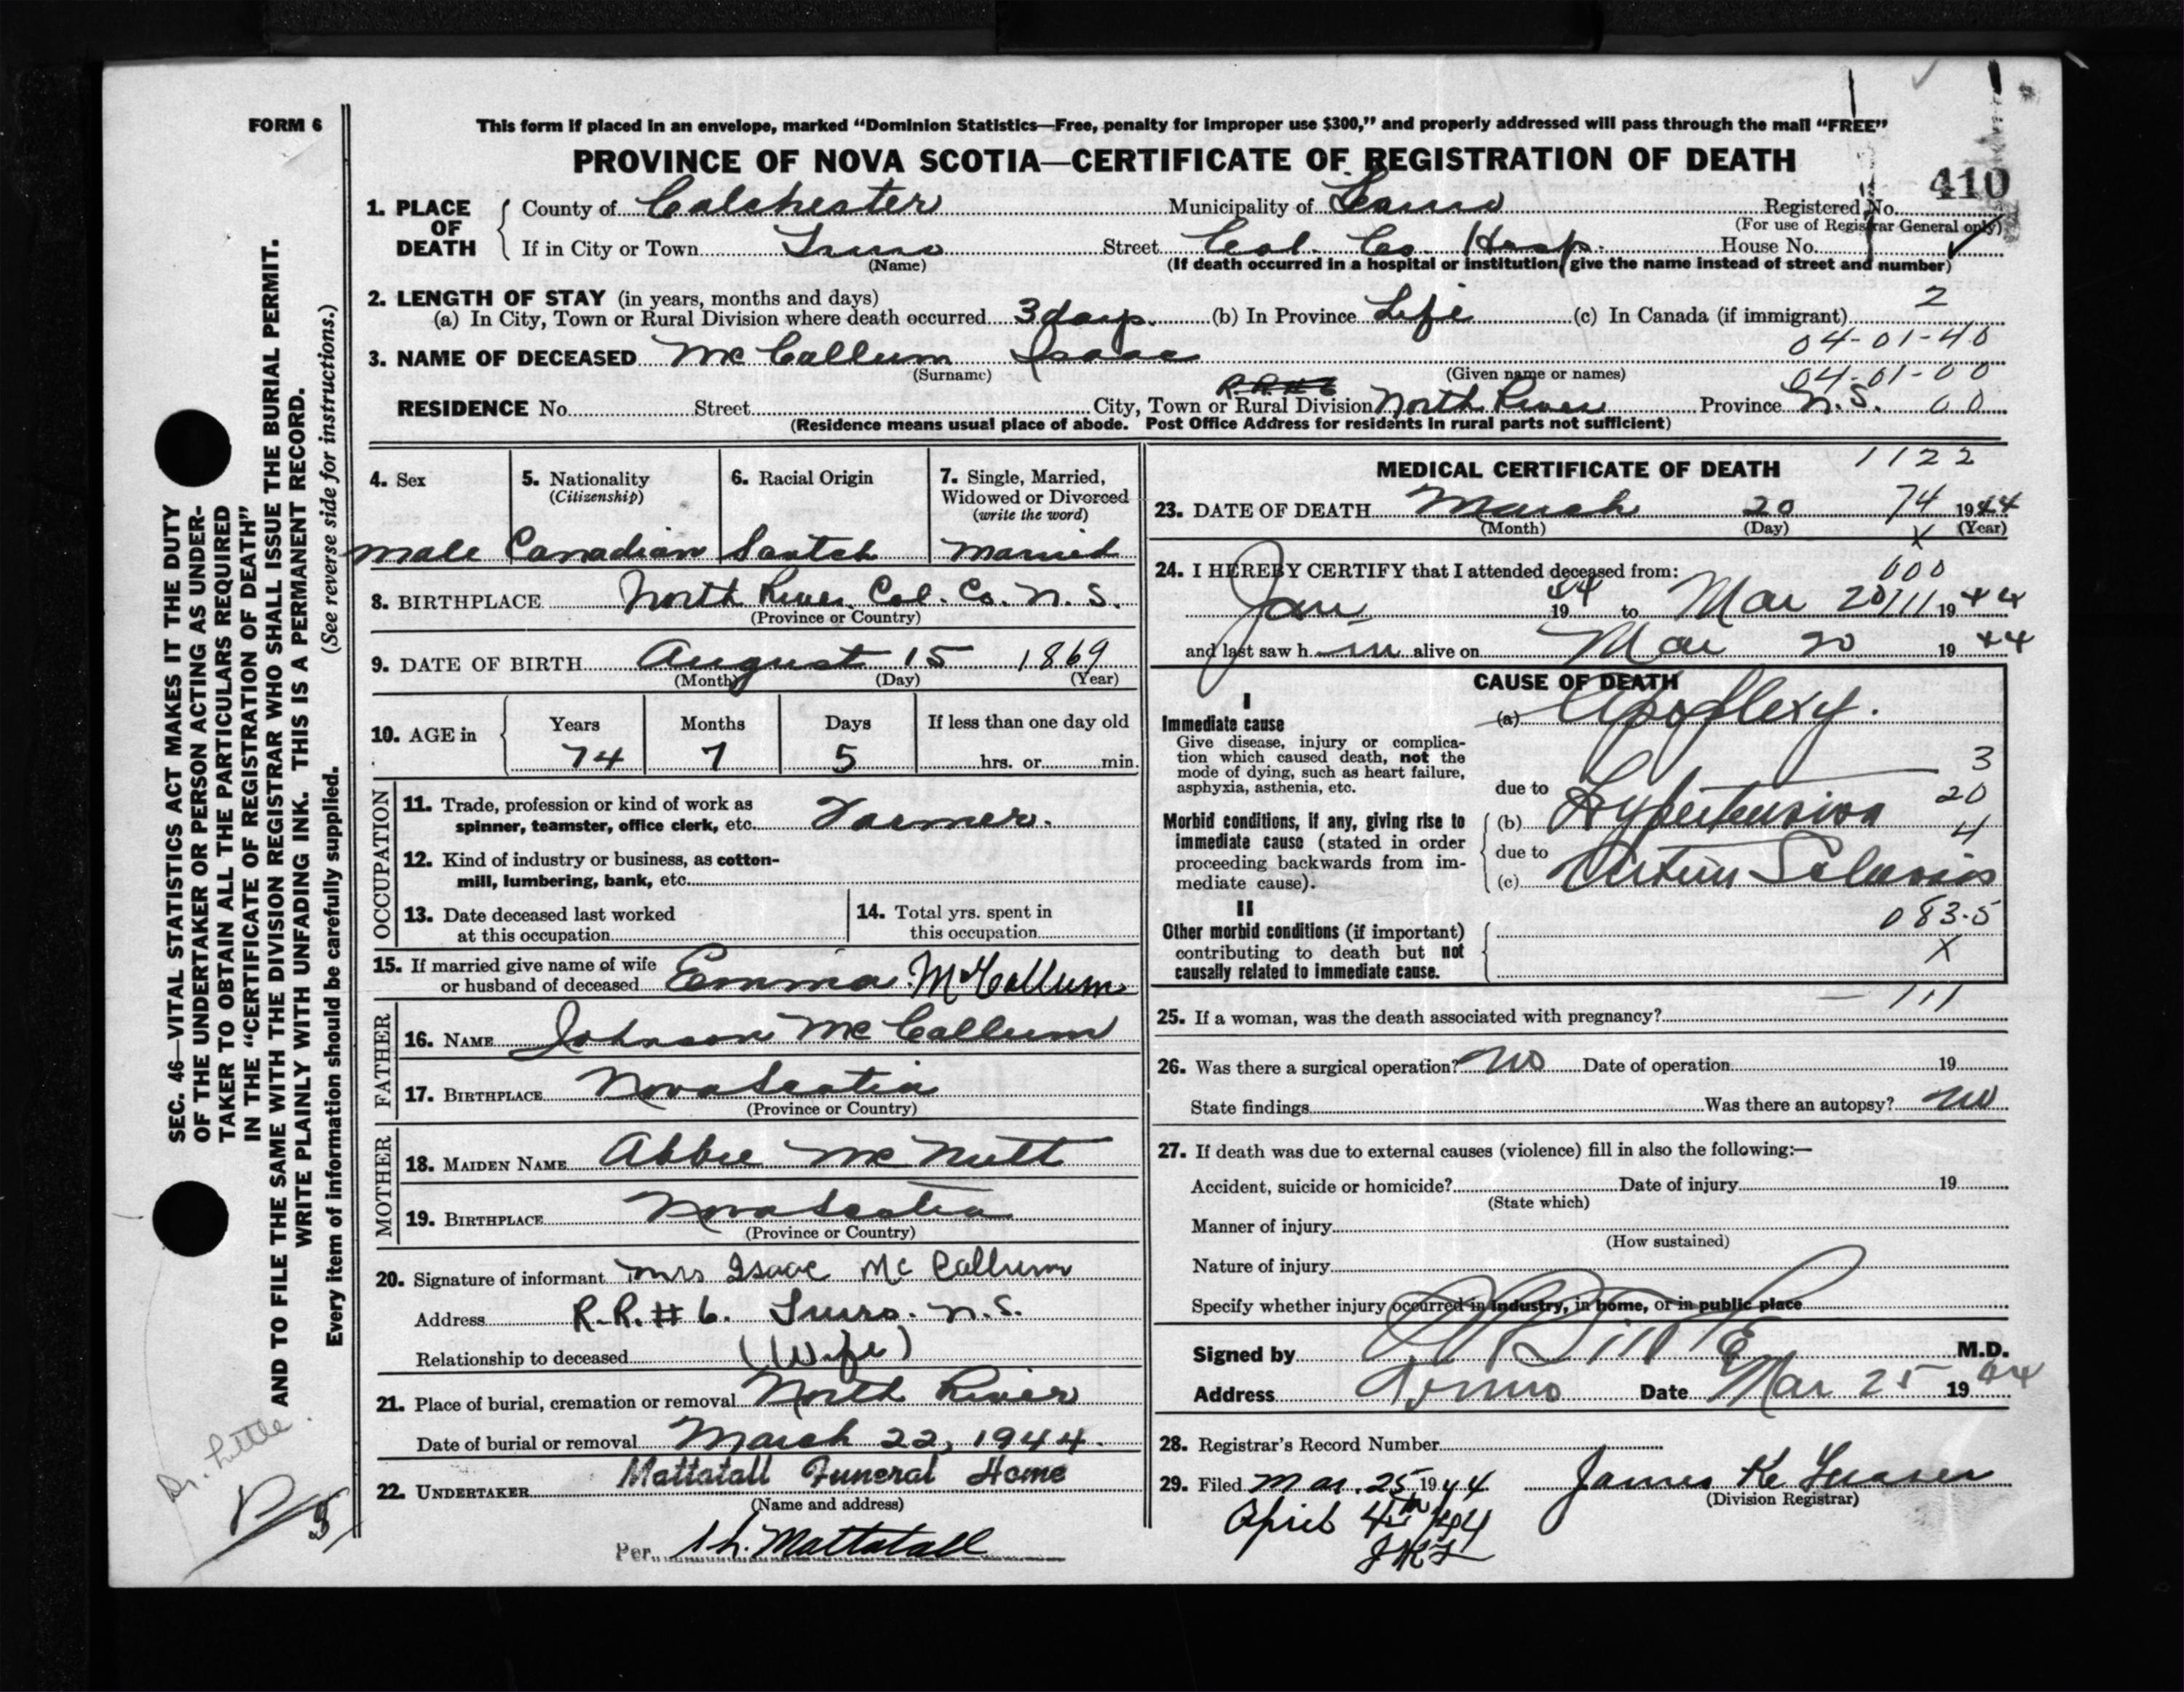 FORM 6
This form if placed in an envelope, marked “Dominion Statistics—Free, penalty for improper use $300,” and properly addressed will pass through the mail “FREE”
PROVINCE OF NOVA SCOTIA—CERTIFICATE OF REGISTRATION OF DEATH
410
1. PLACE OF DEATH
County of Colchester Municipality of Truro Registered No.
(For use of Registrar General only)
If in City or Town Truro Street Col. Co. Hosp. House No.
(Name) (If death occurred in a hospital or institution, give the name instead of street and number)
2. LENGTH OF STAY (in years, months and days) 2
(a) In City, Town or Rural Division where death occurred 3 days. (b) In Province Life (c) In Canada (if immigrant)
04-01-40
3. NAME OF DECEASED McCallum Isaac
(Surname) (Given name or names) 04-01-00
R.R.#6
RESIDENCE No. Street City, Town or Rural Division North River Province N.S. 00
(Residence means usual place of abode. Post Office Address for residents in rural parts not sufficient)
4. Sex 5. Nationality (Citizenship) 6. Racial Origin 7. Single, Married, Widowed or Divorced (write the word)
male Canadian Scotch Married
8. BIRTHPLACE North River Col. Co. N.S.
(Province or Country)
9. DATE OF BIRTH August 15 1869
(Month) (Day) (Year)
10. AGE in Years Months Days If less than one day old
74 7 5 hrs. or min.
OCCUPATION
11. Trade, profession or kind of work as
spinner, teamster, office clerk, etc. Farmer.
12. Kind of industry or business, as cotton-
mill, lumbering, bank, etc.
13. Date deceased last worked at this occupation
14. Total yrs. spent in this occupation
15. If married give name of wife
or husband of deceased Emma McCallum
FATHER
16. NAME Johnson McCallum
17. BIRTHPLACE Nova Scotia
(Province or Country)
MOTHER
18. MAIDEN NAME Abbie McNutt
19. BIRTHPLACE Nova Scotia
(Province or Country)
20. Signature of informant Mrs Isaac McCallum
Address R.R.#6. Truro. N.S.
Relationship to deceased (Wife)
21. Place of burial, cremation or removal North River
Date of burial or removal March 22, 1944.
22. UNDERTAKER Mattatall Funeral Home
(Name and address)
Per Mattatall
MEDICAL CERTIFICATE OF DEATH 1122
23. DATE OF DEATH March 20 74 1944
(Month) (Day) X (Year)
24. I HEREBY CERTIFY that I attended deceased from: 000
Jan 1944 to Mar 20 111 1944
and last saw h im alive on Mar 20 1944
CAUSE OF DEATH
I
Immediate cause (a) Apoplexy.
Give disease, injury or complica-
tion which caused death, not the
mode of dying, such as heart failure,
asphyxia, asthenia, etc.
3
due to
20
Morbid conditions, if any, giving rise to
immediate cause (stated in order
proceeding backwards from im-
mediate cause).
(b) Hypertension
4
due to
(c) Arterio Sclerosis
II
083.5
Other morbid conditions (if important)
contributing to death but not
causally related to immediate cause.
X
111
25. If a woman, was the death associated with pregnancy?
26. Was there a surgical operation? No Date of operation 19
State findings Was there an autopsy? No
27. If death was due to external causes (violence) fill in also the following:—
Accident, suicide or homicide? Date of injury 19
(State which)
Manner of injury
(How sustained)
Nature of injury
Specify whether injury occurred in industry, in home, or in public place
Signed by M.D.
Address Truro Date Mar 25 1944
28. Registrar’s Record Number
29. Filed Mar. 25 1944 James K Fraser
(Division Registrar)
April 4th/44
JKF
SEC. 46—VITAL STATISTICS ACT MAKES IT THE DUTY
OF THE UNDERTAKER OR PERSON ACTING AS UNDER-
TAKER TO OBTAIN ALL THE PARTICULARS REQUIRED
IN THE “CERTIFICATE OF REGISTRATION OF DEATH”
AND TO FILE THE SAME WITH THE DIVISION REGISTRAR WHO SHALL ISSUE THE BURIAL PERMIT.
WRITE PLAINLY WITH UNFADING INK. THIS IS A PERMANENT RECORD.
Every item of information should be carefully supplied. (See reverse side for instructions.)
Dr. Little